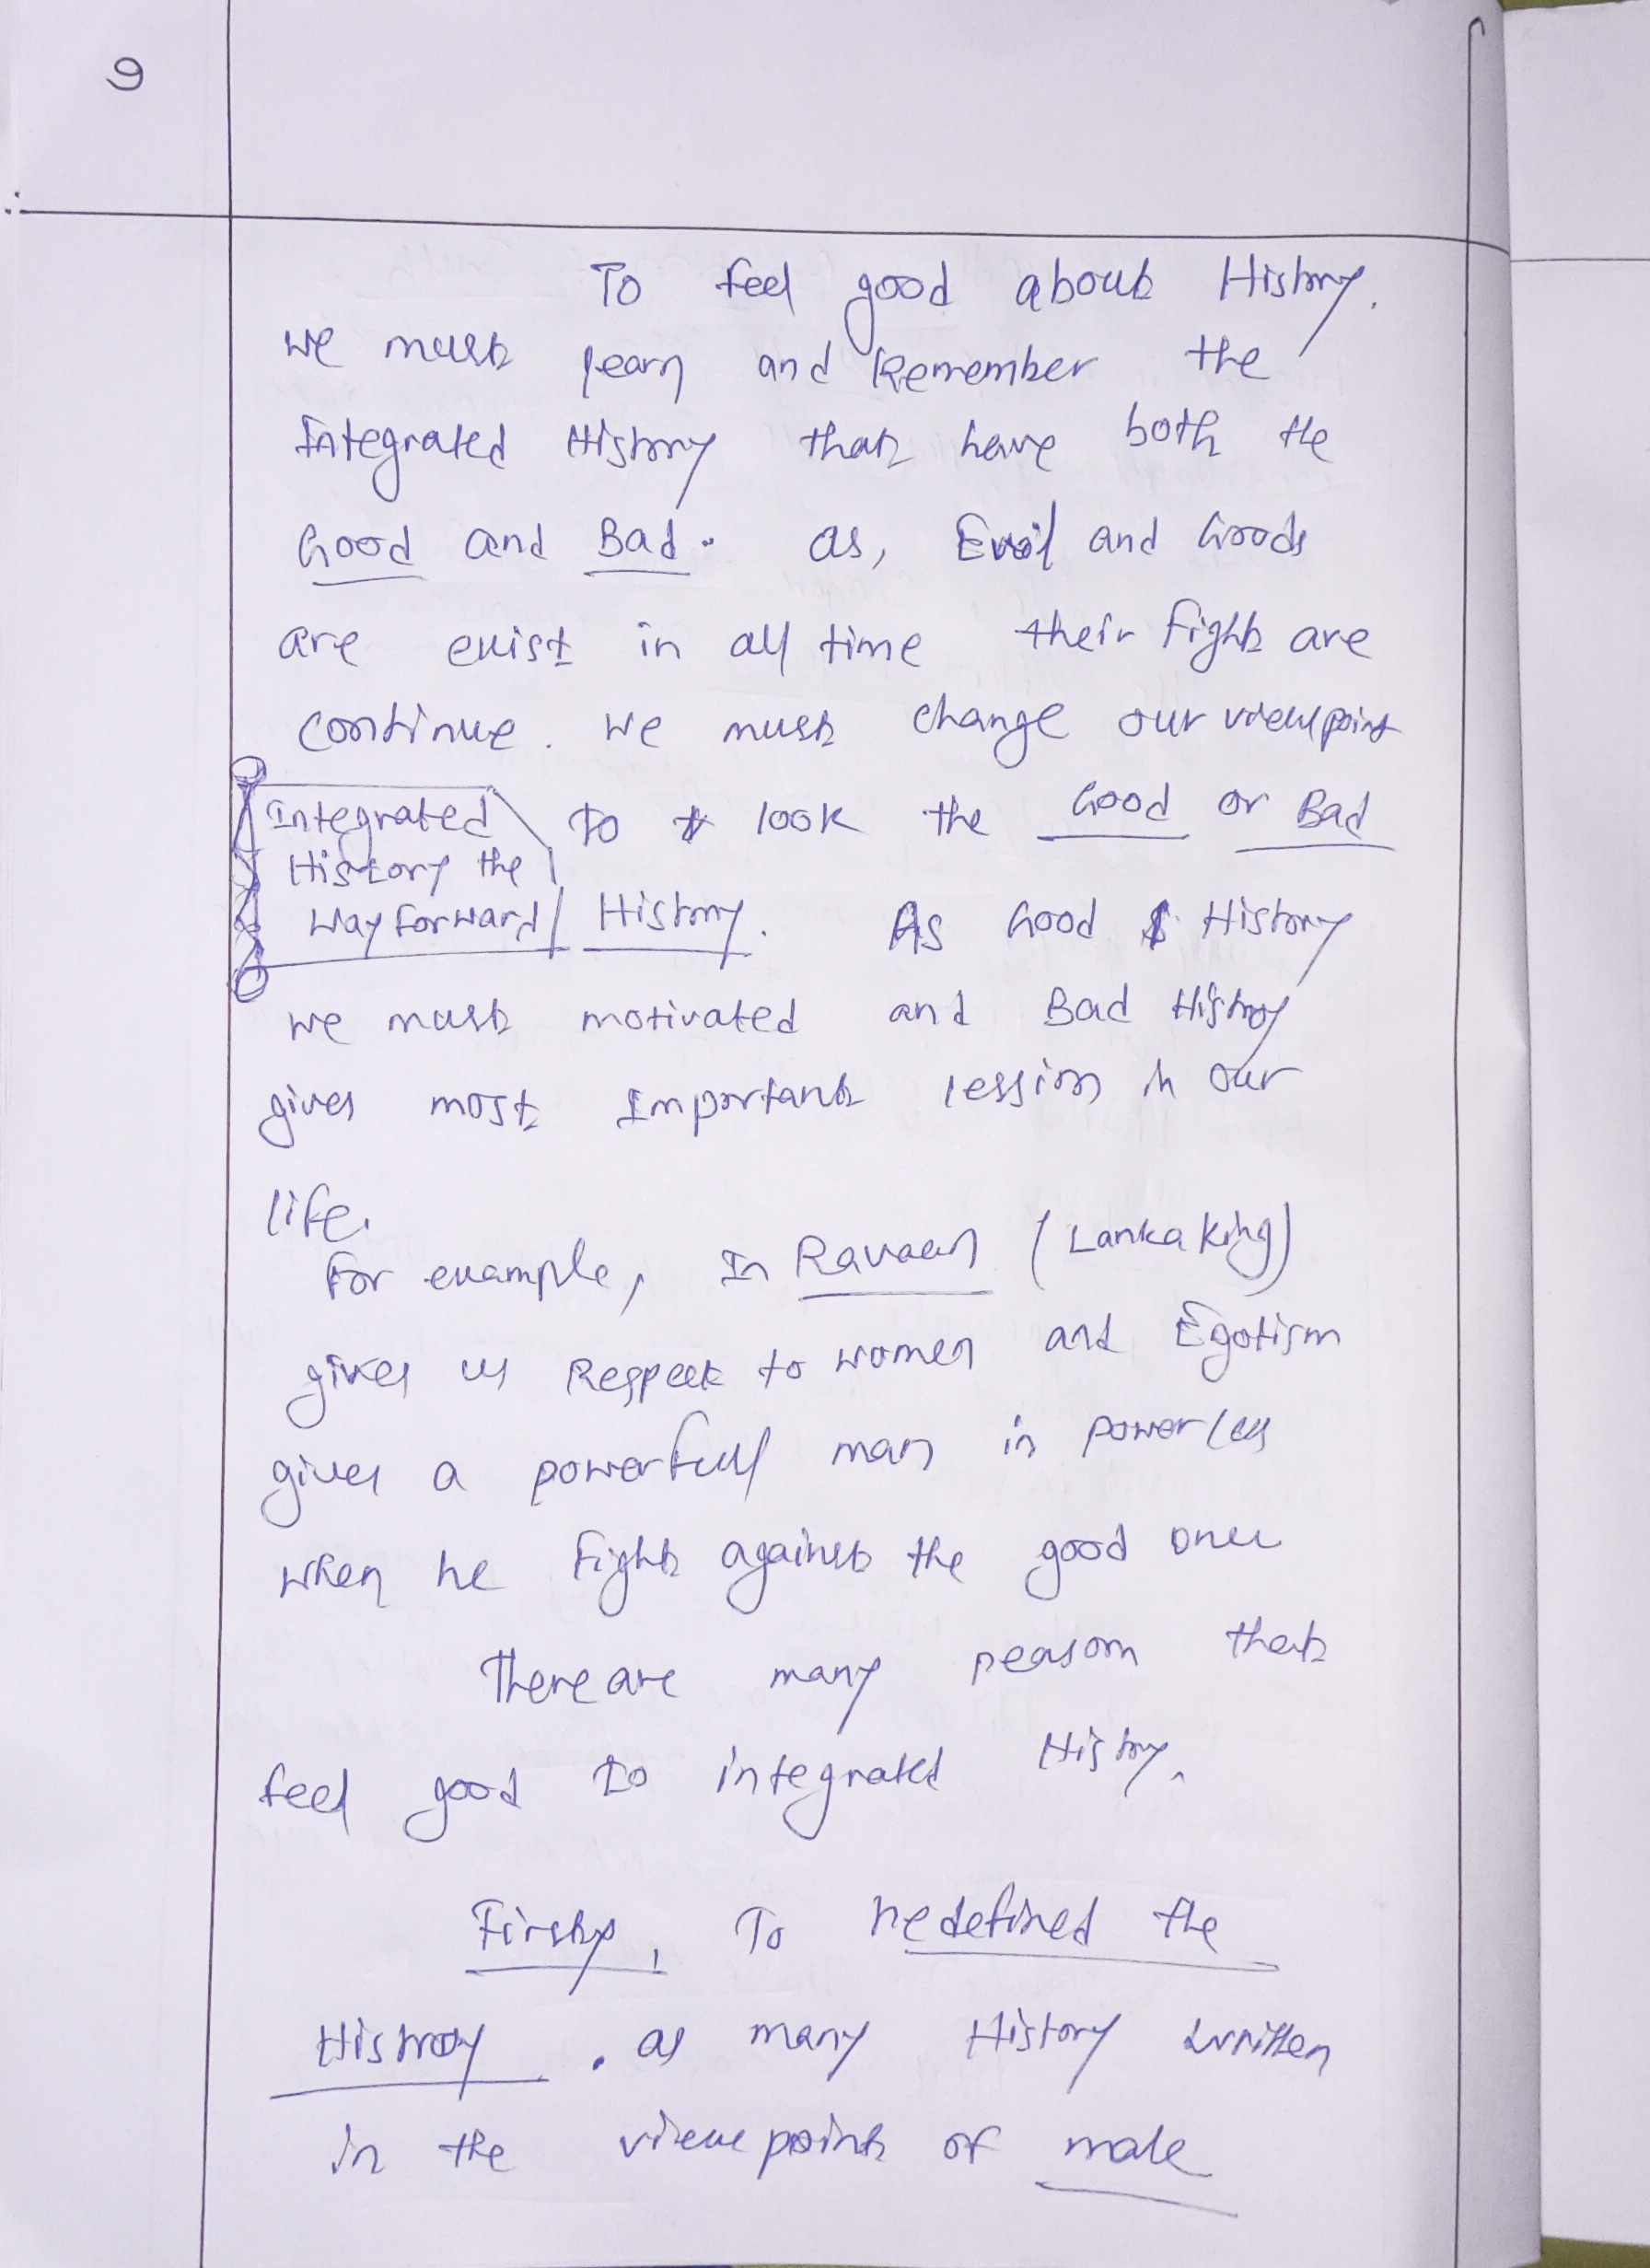 9
To feel good about History.
we must learn and Remember the
Integrated History that have both the
Good and Bad. as, Evil and Goods
are exist in all time their fight are
continue. we must change our viewpoint
Integrated
History the
way forward
To look the Good or Bad
History. As Good History
we must motivated and Bad History
gives most Important lession in our
life.
For example, In Ravaan (Lanka king)
gives us Respect to women and Egotism
gives a powerfull man in powerless
when he fight against the good ones
There are many reason that
feel good to integrated History.
Firstly, To redefined the
Histroy. as many History written
in the viewpoint of male